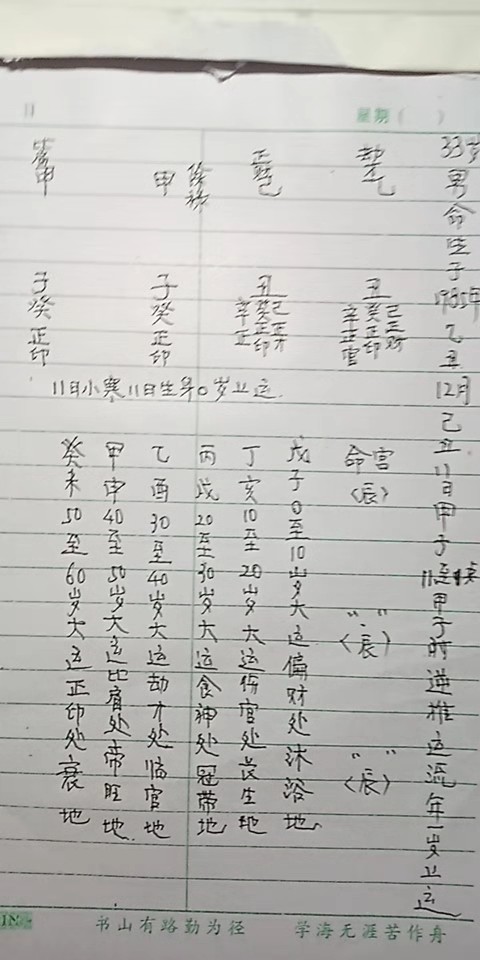 星期（　）
33岁男命生于1985年乙丑12月己丑11日甲子11点甲子时逆推运流年一岁上运
劫才乙
丑
己正财
癸正印
辛正官
命宫〈辰〉
〃〈辰〉
〃〈辰〉
正财己
丑
己正才
癸正印
辛正
甲
子癸正印
甲
子癸正印
11日小寒11日生
岁上运
戊子0至10岁大运偏财处沐浴地
丁亥10至20岁大运伤官处长生地
丙戌20至30岁大运食神处冠带地
乙酉30至40岁大运劫才处临官地
甲申40至50岁大运比肩处帝旺地
癸未50至60岁大运正印处衰地
书山有路勤为径
学海无涯苦作舟